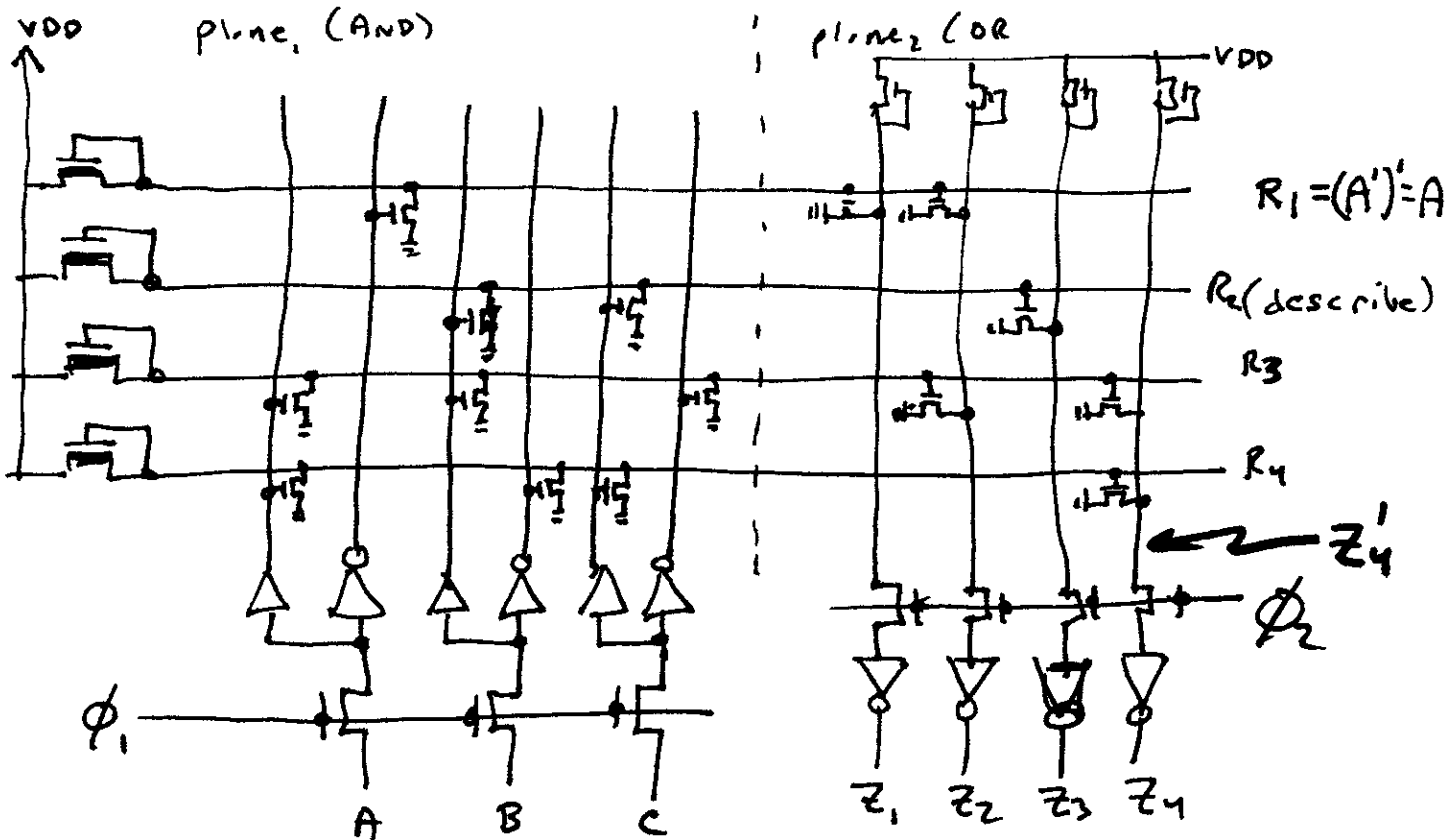 VDD
plane₁ (AND)
plane₂ (OR
VDD
R₁ = (A')' = A
R₂ (describe)
R₃
R₄
Z₄'
ϕ₂
ϕ₁
A B C
Z₁ Z₂ Z₃ Z₄